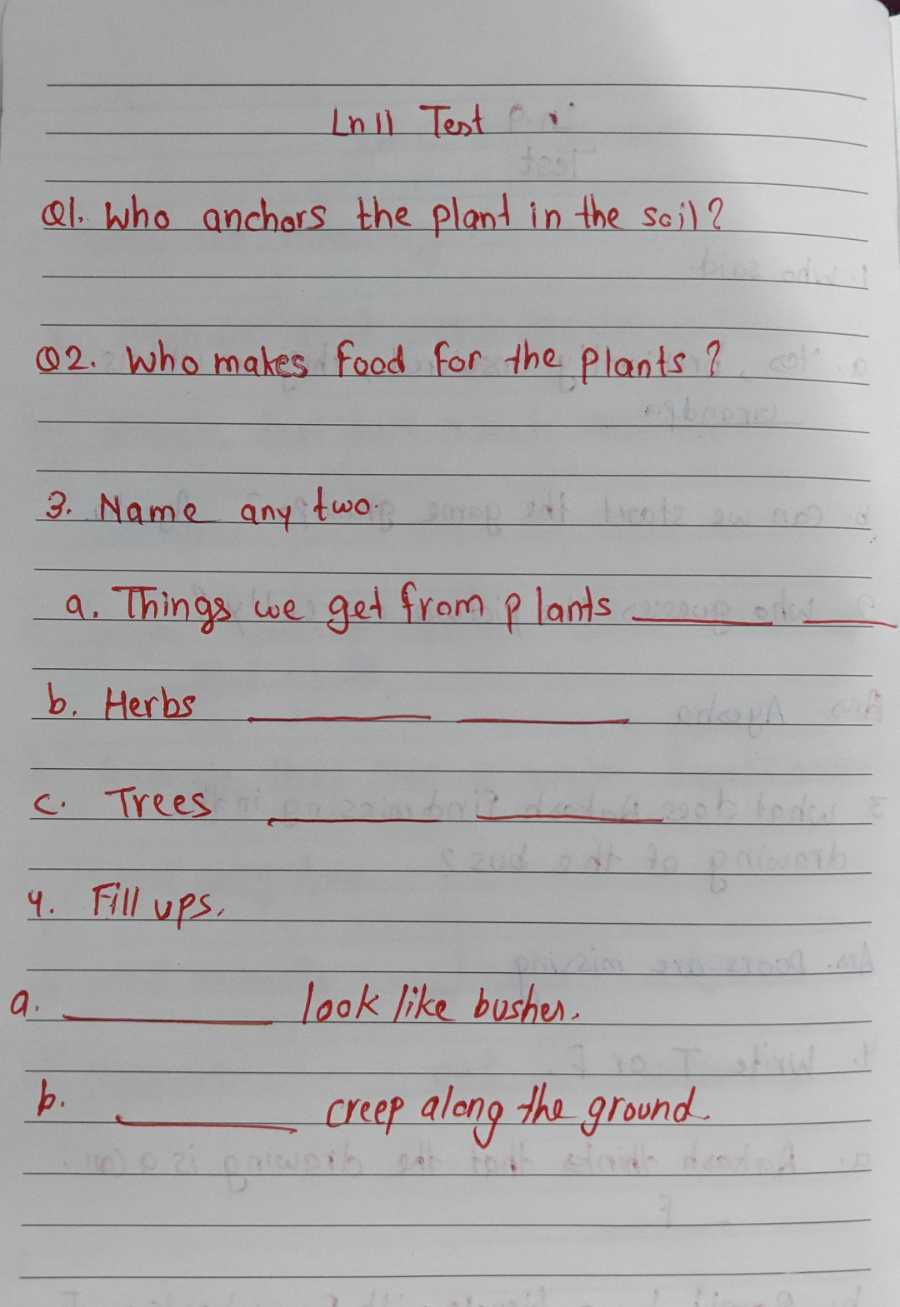 Ln 11 Test
Q1. Who anchors the plant in the soil?
Q2. Who makes food for the plants?
3. Name any two.
a. Things we get from plants ______ ______
b. Herbs ______ ______
c. Trees ______ ______
4. Fill ups.
a. ______ look like bushes.
b. ______ creep along the ground.